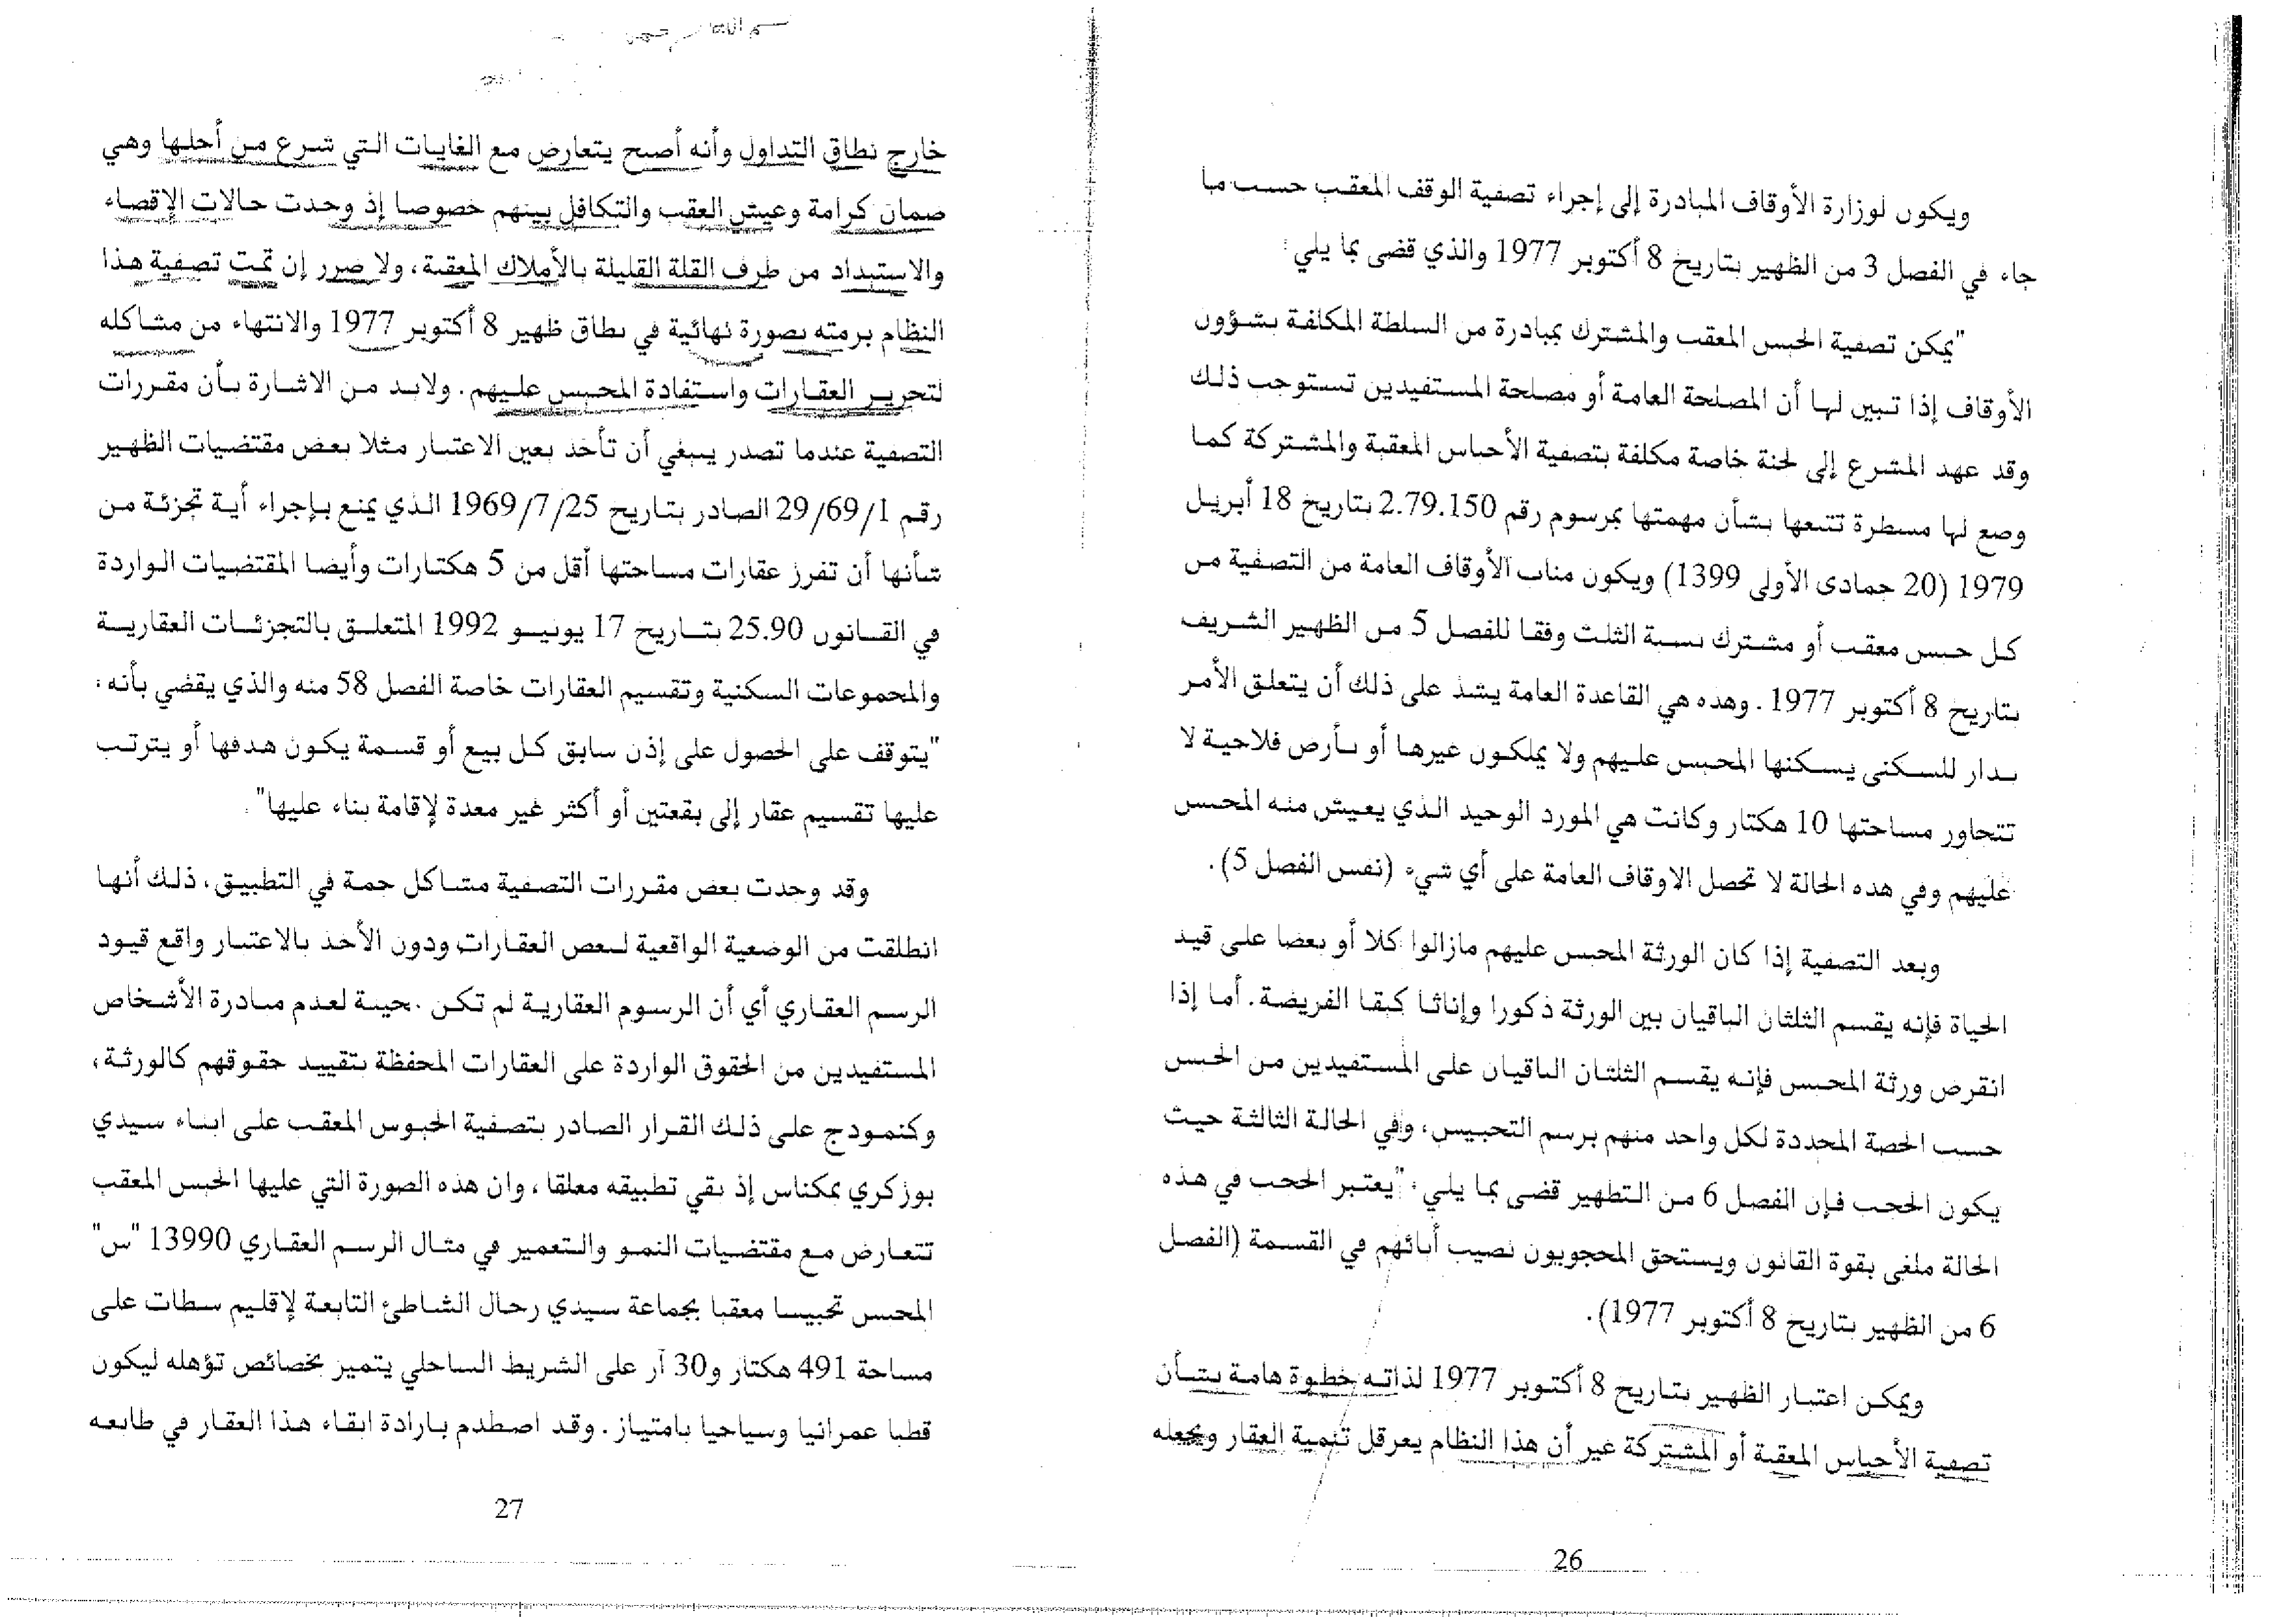 ويكون لوزارة الأوقاف المبادرة إلى إجراء تصفية الوقف المعقب حسب ما
جاء في الفصل 3 من الظهير بتاريخ 8 أكتوبر 1977 والذي قضى بما يلي:
"يمكن تصفية الحبس المعقب والمشترك بمبادرة من السلطة المكلفة بشؤون
الأوقاف إذا تبين لها أن المصلحة العامة أو مصلحة المستفيدين تستوجب ذلك
وقد عهد المشرع إلى لجنة خاصة مكلفة بتصفية الأحباس المعقبة والمشتركة كما
وضع لها مسطرة تتبعها بشأن مهمتها بمرسوم رقم 2.79.150 بتاريخ 18 أبريل
1979 (20 جمادى الأولى 1399) ويكون مناب الأوقاف العامة من التصفية من
كل حبس معقب أو مشترك نسبة الثلث وفقا للفصل 5 من الظهير الشريف
بتاريخ 8 أكتوبر 1977. وهذه هي القاعدة العامة يشذ على ذلك أن يتعلق الأمر
بدار للسكنى يسكنها المحبس عليهم ولا يملكون غيرها أو بأرض فلاحية لا
تتجاوز مساحتها 10 هكتار وكانت هي المورد الوحيد الذي يعيش منه المحبس
عليهم وفي هده الحالة لا تحصل الاوقاف العامة على أي شيء (نفس الفصل 5).
وبعد التصفية إذا كان الورثة المحبس عليهم مازالوا كلا أو بعضا على قيد
الحياة فإنه يقسم الثلثان الباقيان بين الورثة ذكورا وإناثا كبقا الفريضة. أما إذا
انقرض ورثة المحبس فإنه يقسم الثلثان الباقيان على المستفيدين من الحبس
حسب الحصة المحددة لكل واحد منهم برسم التحبيس، وفي الحالة الثالثة حيث
يكون الحجب فإن الفصل 6 من التطهير قضى بما يلي: "يعتبر الحجب في هذه
الحالة ملغى بقوة القانون ويستحق المحجوبون نصيب أبائهم في القسمة (الفصل
6 من الظهير بتاريخ 8 أكتوبر 1977).
ويمكن اعتبار الظهير بتاريخ 8 أكتوبر 1977 لذاته خطوة هامة بشأن
تصفية الأحباس المعقبة أو المشتركة غير أن هذا النظام يعرقل تنمية العقار ويجعله
26
خارج نطاق التداول وأنه أصبح يتعارض مع الغايات التي شرع من أجلها وهي
ضمان كرامة وعيش العقب والتكافل بينهم خصوصا إذ وجدت حالات الإقصاء
والاستبداد من طرف القلة القليلة بالأملاك المعقبة، ولا ضرر إن تمت تصفية هذا
النظام برمته بصورة نهائية في نطاق ظهير 8 أكتوبر 1977 والانتهاء من مشاكله
لتحرير العقارات واستفادة المحبس عليهم. ولابد من الاشارة بأن مقررات
التصفية عندما تصدر ينبغي أن تأخذ بعين الاعتبار مثلا بعض مقتضيات الظهير
رقم 29/69/1 الصادر بتاريخ 1969/7/25 الذي يمنع بإجراء أية تجزئة من
شأنها أن تفرز عقارات مساحتها أقل من 5 هكتارات وأيضا المقتضيات الواردة
في القانون 25.90 بتاريخ 17 يونيو 1992 المتعلق بالتجزئات العقارية
والمجموعات السكنية وتقسيم العقارات خاصة الفصل 58 منه والذي يقضي بأنه:
"يتوقف على الحصول على إذن سابق كل بيع أو قسمة يكون هدفها أو يترتب
عليها تقسيم عقار إلى بقعتين أو أكثر غير معدة لإقامة بناء عليها".
وقد وجدت بعض مقررات التصفية مشاكل جمة في التطبيق، ذلك أنها
انطلقت من الوضعية الواقعية لبعض العقارات ودون الأخذ بالاعتبار واقع قيود
الرسم العقاري أي أن الرسوم العقارية لم تكن محينة لعدم مبادرة الأشخاص
المستفيدين من الحقوق الواردة على العقارات المحفظة بتقييد حقوقهم كالورثة،
وكنمودج على ذلك القرار الصادر بتصفية الحبوس المعقب على ابناء سيدي
بوزكري بمكناس إذ بقي تطبيقه معلقا، وان هذه الصورة التي عليها الحبس المعقب
تتعارض مع مقتضيات النمو والتعمير في مثال الرسم العقاري 13990 "س"
المحبس تحبيسا معقبا بجماعة سيدي رحال الشاطئ التابعة لإقليم سطات على
مساحة 491 هكتار و30 آر على الشريط الساحلي يتميز بخصائص تؤهله ليكون
قطبا عمرانيا وسياحيا بامتياز. وقد اصطدم بارادة ابقاء هذا العقار في طابعه
27